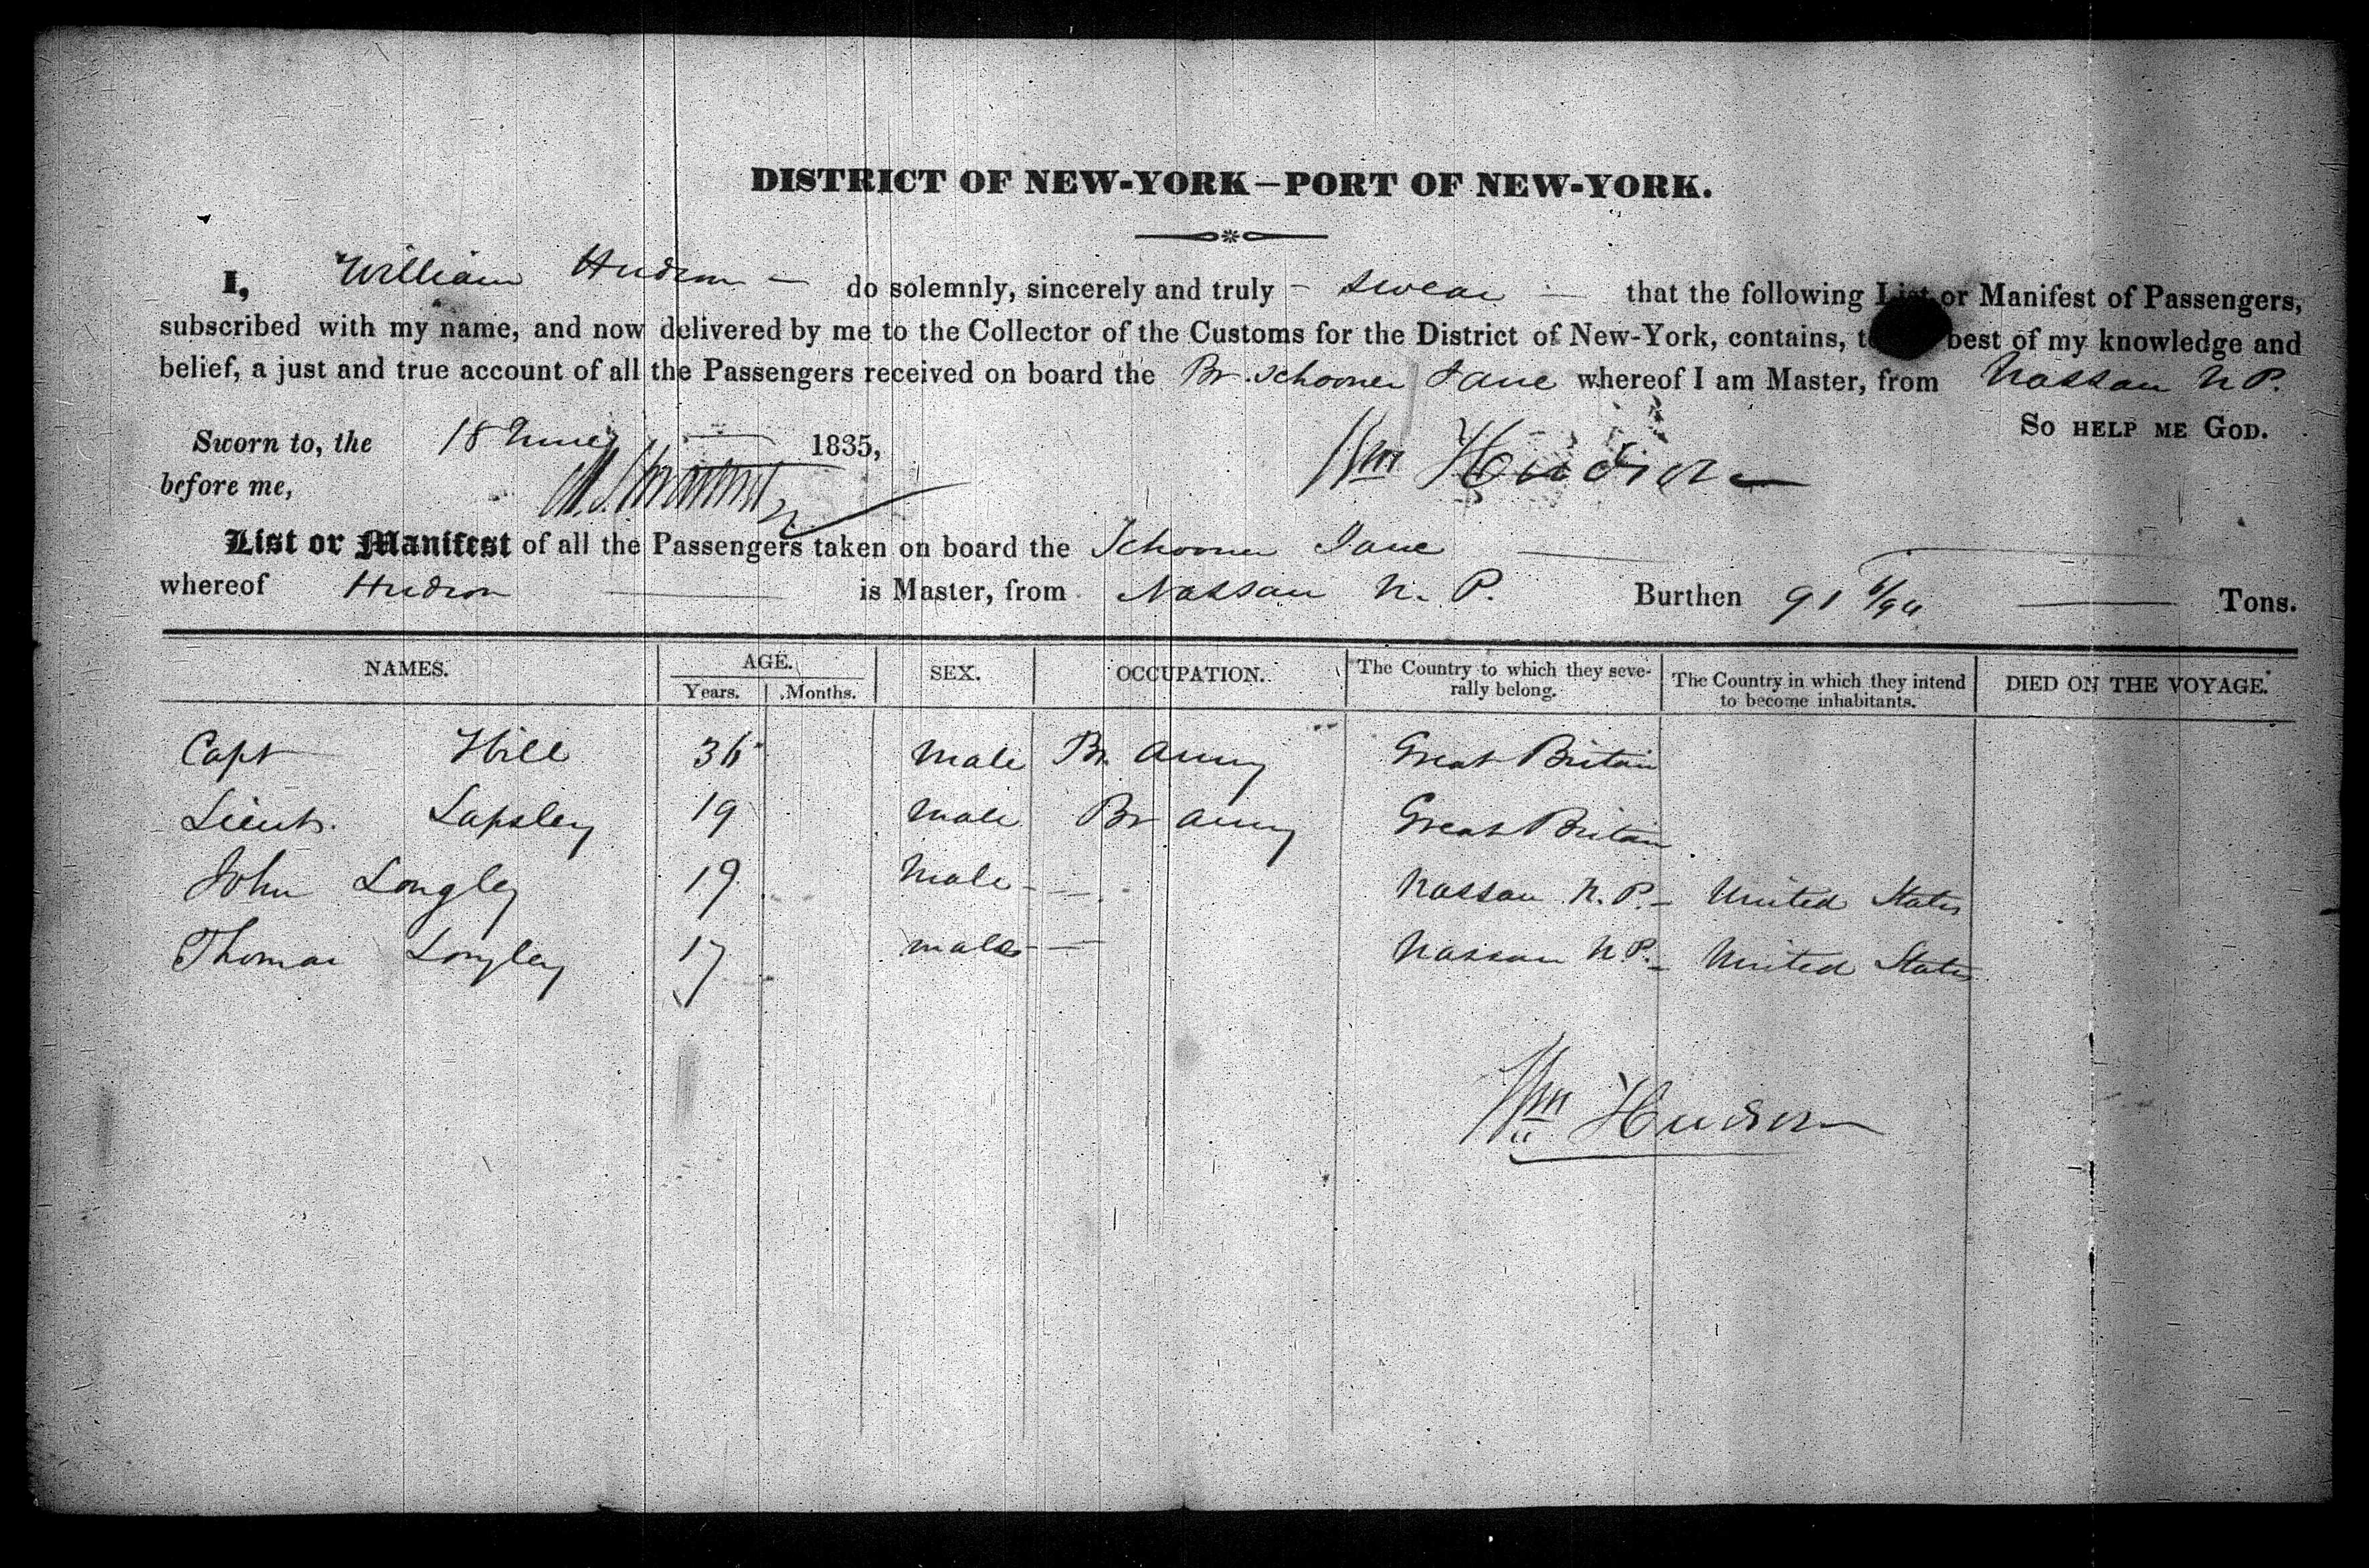 DISTRICT OF NEW-YORK—PORT OF NEW-YORK.
I, William Hudson — do solemnly, sincerely and truly - swear — that the following List or Manifest of Passengers,
subscribed with my name, and now delivered by me to the Collector of the Customs for the District of New-York, contains, best of my knowledge and
belief, a just and true account of all the Passengers received on board the Br. Schooner Jane whereof I am Master, from Nassau N P.
So HELP ME GOD.
Sworn to, the 18 June 1835,
before me,
Wm Hudson
List or Manifest of all the Passengers taken on board the Schooner Jane
whereof Hudson is Master, from Nassau N. P. Burthen 91 Tons.
NAMES. AGE. Years. Months. SEX. OCCUPATION. The Country to which they severally belong. The Country in which they intend to become inhabitants. DIED ON THE VOYAGE.
Capt Hill 36 Male Br. Army Great Britain
Lieut. Lapsley 19 Male Br Army Great Britain
John Longley 19 Male - — Nassau N. P. - United States
Thomas Longley 17 male - — Nassau N P. - United States
Wm Hudson